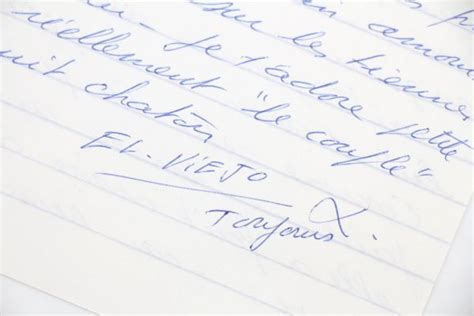 en amour
sur les tiennes
Je t'adore petite
réellement "le couple"
chaton
EL-VIEJO
Toujours.